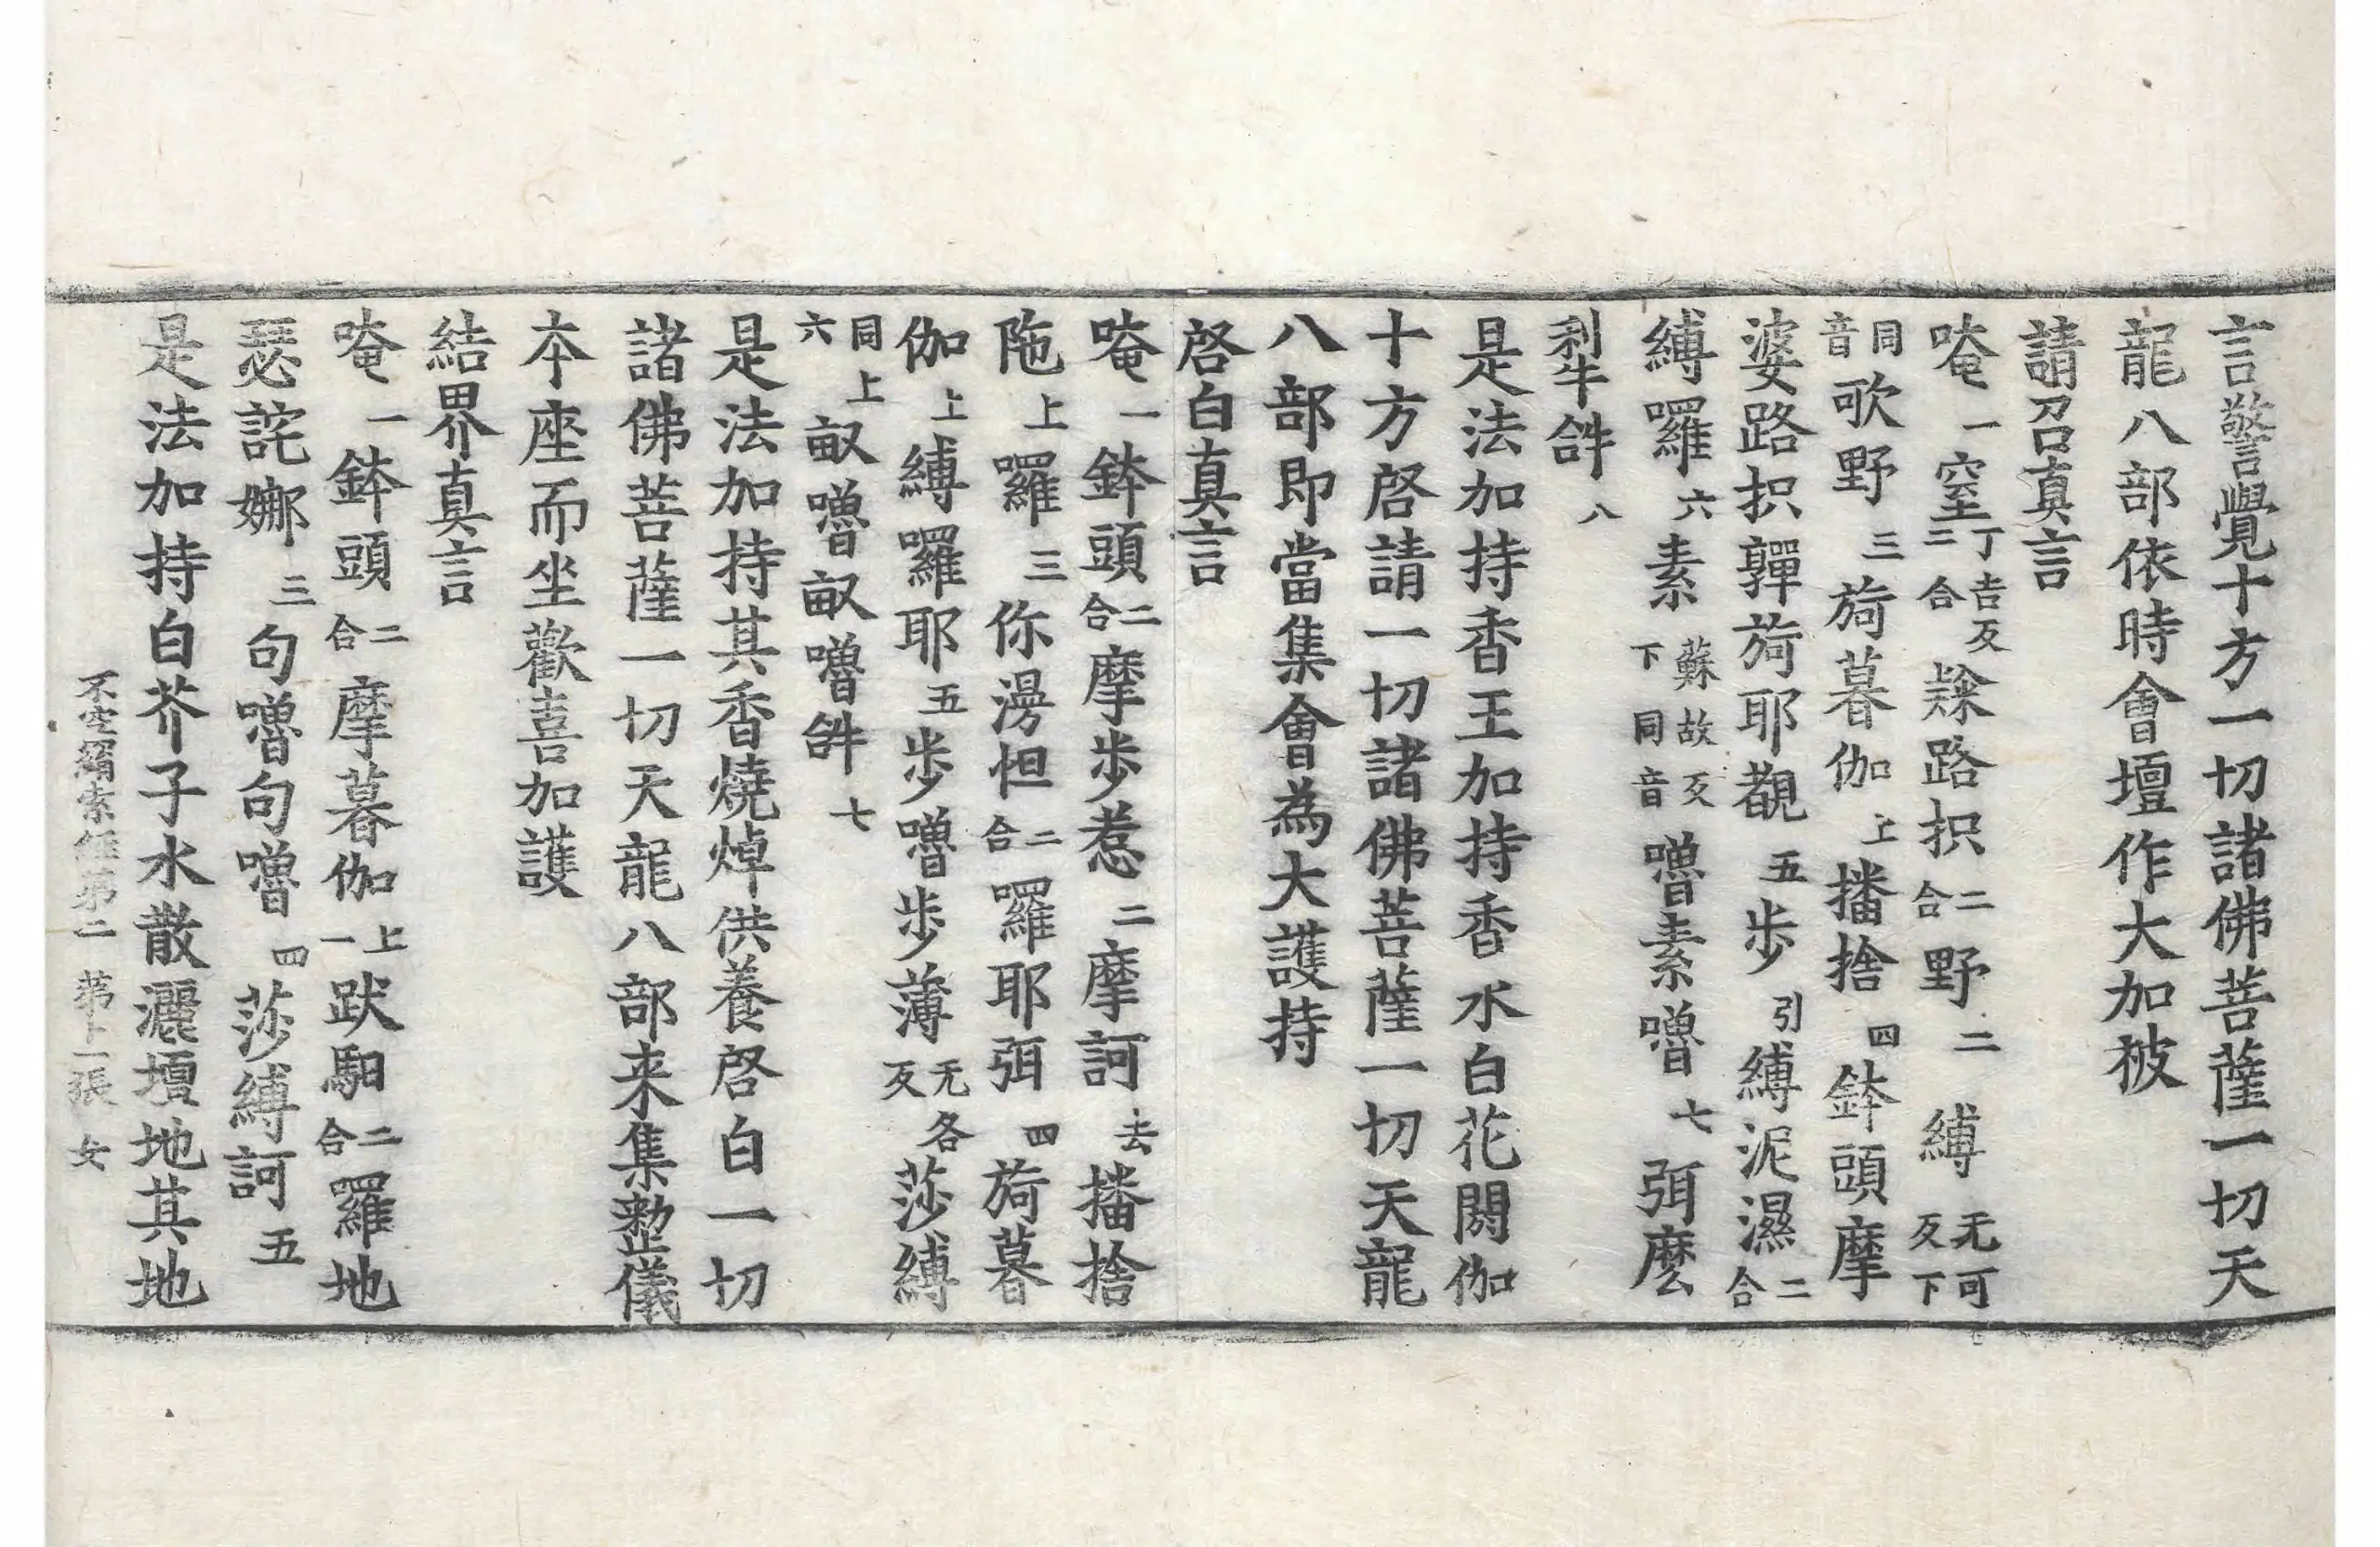 言警覺十方一切諸佛菩薩一切天
龍八部依時會壇作大加被
請召真言
唵一窒丁吉反二合㘑路枳二合野二縛无可反下
同音歌野三旖暮伽上播捨四鉢頭摩
婆路枳嚲旖耶覩五步引縛泥濕二合
縛羅六素蘇故反下同音嚕素嚕七弭麽
利𤙖𤙖八
是法加持香王加持香水白花閼伽
十方啓請一切諸佛菩薩一切天龍
八部即當集會為大護持
啓白真言
唵一鉢頭二合摩步惹二摩訶去播捨
陁上囉三你漫怛二合囉耶弭四旖暮
伽上縛囉耶五步嚕步薄无各反莎縛
六同上㕭嚕㕭嚕𤙖七
是法加持其香燒焯供養啓白一切
諸佛菩薩一切天龍八部来集整儀
本座而坐歡喜加護
結界真言
唵一鉢頭二合摩暮伽上一跋馹二合羅地
瑟詫娜三句嚕句嚕四莎縛訶五
是法加持白芥子水散灑壇地其地
不空羂索經第二 第十一張 女